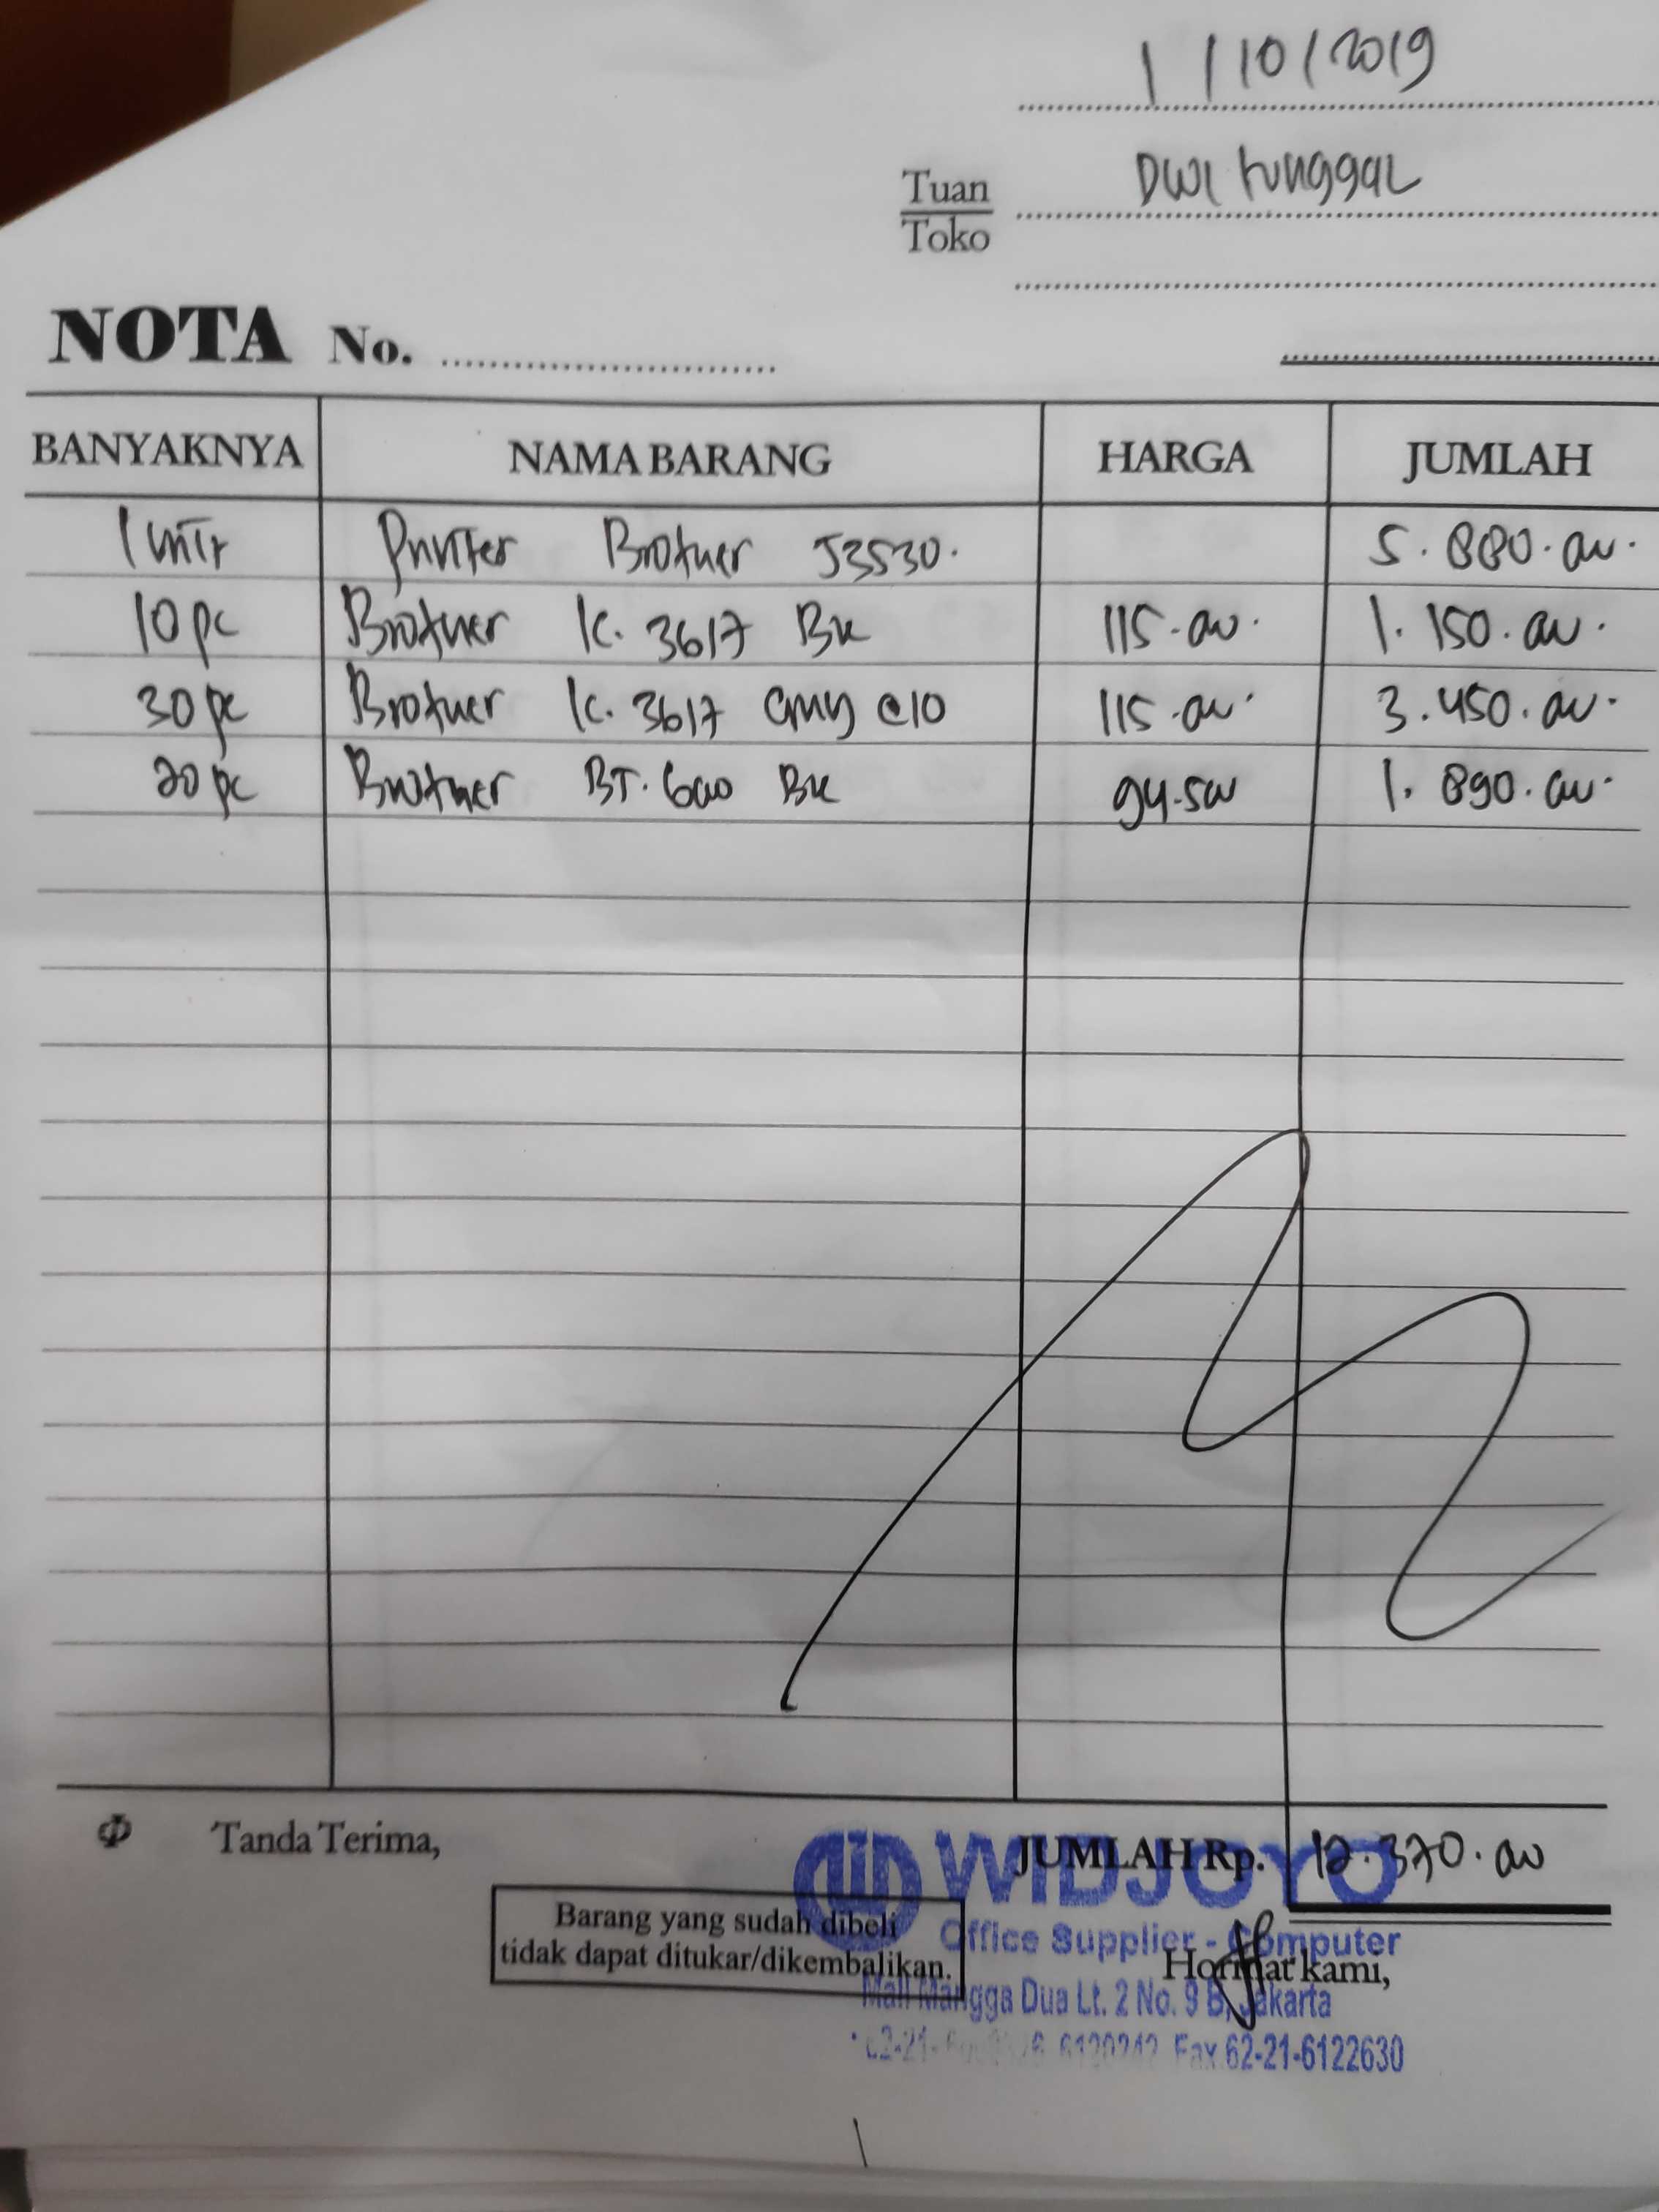 1 / 10 / 2019
Tuan
Toko
Dwi tunggal
NOTA No.
BANYAKNYA NAMA BARANG HARGA JUMLAH
1 unit Printer Brother J3530. 5.880.000.
10 pc Brother lc. 3617 Bk 115.000. 1.150.000.
30 pc Brother lc. 3617 cmy @10 115.000. 3.450.000.
20 pc Brother BT. 6000 Bk 94.500 1.890.000.
Tanda Terima,
JUMLAH Rp. 12.370.000
WIDJOYO
Barang yang sudah dibeli
tidak dapat ditukar/dikembalikan.
Office Supplier - Computer
Hormat kami,
Mall Mangga Dua Lt. 2 No. 9 B, Jakarta
6120242 Fax.62-21-6122630